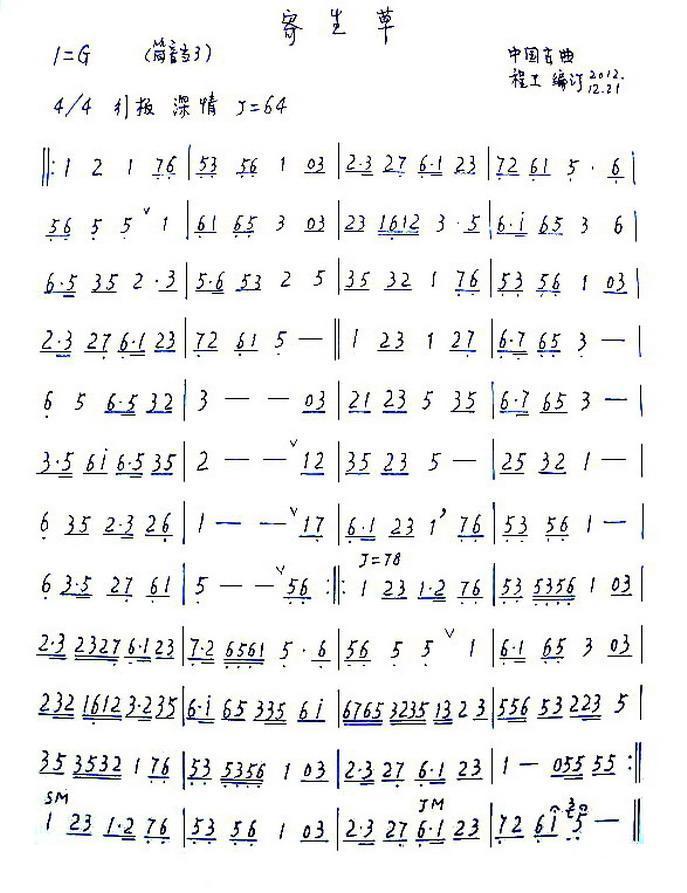 寄生草
1=G (筒音当3) 中国古曲
程工 编订 2012.12.21
4/4 引板 深情 J=64
‖: 1 2 1 76 | 53 56 1 03 | 2·3 27 6·1 23 | 72 61 5· 6 |
56 5 5 ˅ 1 | 61 65 3 03 | 23 1612 3·5 | 6·i 65 3 6 |
6·5 35 2·3 | 5·6 53 2 5 | 35 32 1 76 | 53 56 1 03 |
2·3 27 6·1 23 | 72 61 5 — ‖ 1 23 1 27 | 6·7 65 3 — |
6 5 6·5 32 | 3 — — 03 | 21 23 5 35 | 6·7 65 3 — |
3·5 6i 6·5 35 | 2 — — ˅ 12 | 35 23 5 — | 25 32 1 — |
6 35 2·3 26 | 1 — — ˅ 17 | 6·1 23 1 ’ 76 | 53 56 1 — |
J=78
6 3·5 27 61 | 5 — — ˅ 56 :‖: 1 23 1·2 76 | 53 5356 1 03 |
2·3 2327 6·1 23 | 7·2 6561 5· 6 | 56 5 5 ˅ 1 | 6·1 65 3 03 |
232 1612 3·235 | 6·i 65 335 6i | 6765 3235 13 2 3 | 556 53 223 5 |
35 3532 1 76 | 53 5356 1 03 | 2·3 27 6·1 23 | 1 — 055 55 :‖
SM JM
1 23 1·2 76 | 53 56 1 03 | 2·3 27 6·1 23 | 72 61 5 — ‖